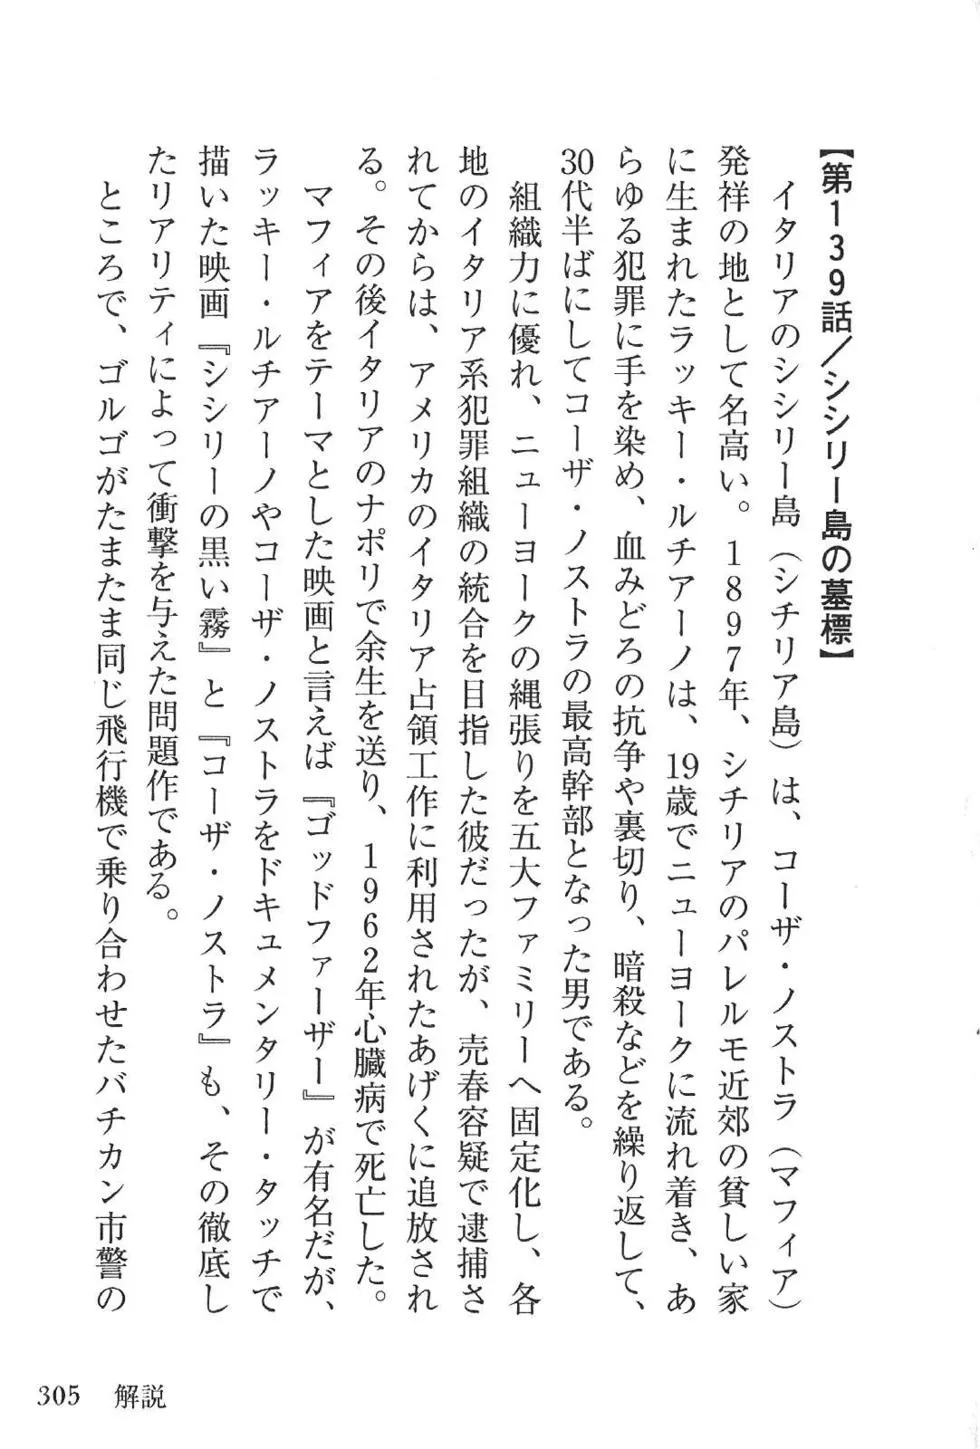 【第139話／シシリー島の墓標】
イタリアのシシリー島（シチリア島）は、コーザ・ノストラ（マフィア）
発祥の地として名高い。1897年、シチリアのパレルモ近郊の貧しい家
に生まれたラッキー・ルチアーノは、19歳でニューヨークに流れ着き、あ
らゆる犯罪に手を染め、血みどろの抗争や裏切り、暗殺などを繰り返して、
30代半ばにしてコーザ・ノストラの最高幹部となった男である。
組織力に優れ、ニューヨークの縄張りを五大ファミリーへ固定化し、各
地のイタリア系犯罪組織の統合を目指した彼だったが、売春容疑で逮捕さ
れてからは、アメリカのイタリア占領工作に利用されたあげくに追放され
る。その後イタリアのナポリで余生を送り、1962年心臓病で死亡した。
マフィアをテーマとした映画と言えば『ゴッドファーザー』が有名だが、
ラッキー・ルチアーノやコーザ・ノストラをドキュメンタリー・タッチで
描いた映画『シシリーの黒い霧』と『コーザ・ノストラ』も、その徹底し
たリアリティによって衝撃を与えた問題作である。
ところで、ゴルゴがたまたま同じ飛行機で乗り合わせたバチカン市警の
305 解説